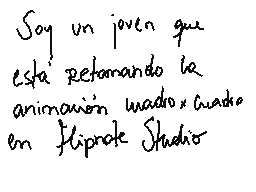 Soy un joven que
está retomando la
animación cuadro x cuadro
en Flipnote Studio